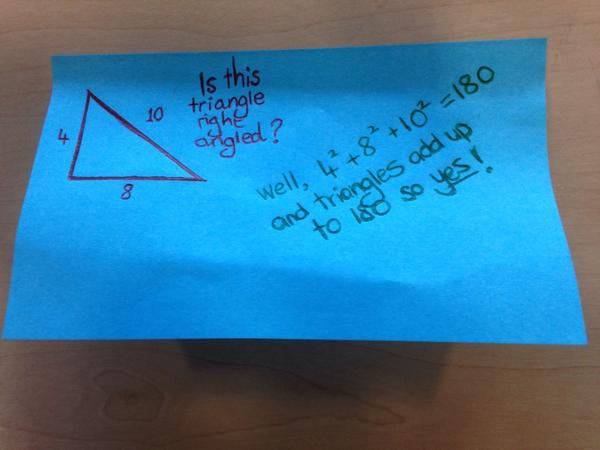 Is this
triangle
right
angled?
10
4
8
well, 4²+8²+10²=180
and triangles add up
to 180 so yes!